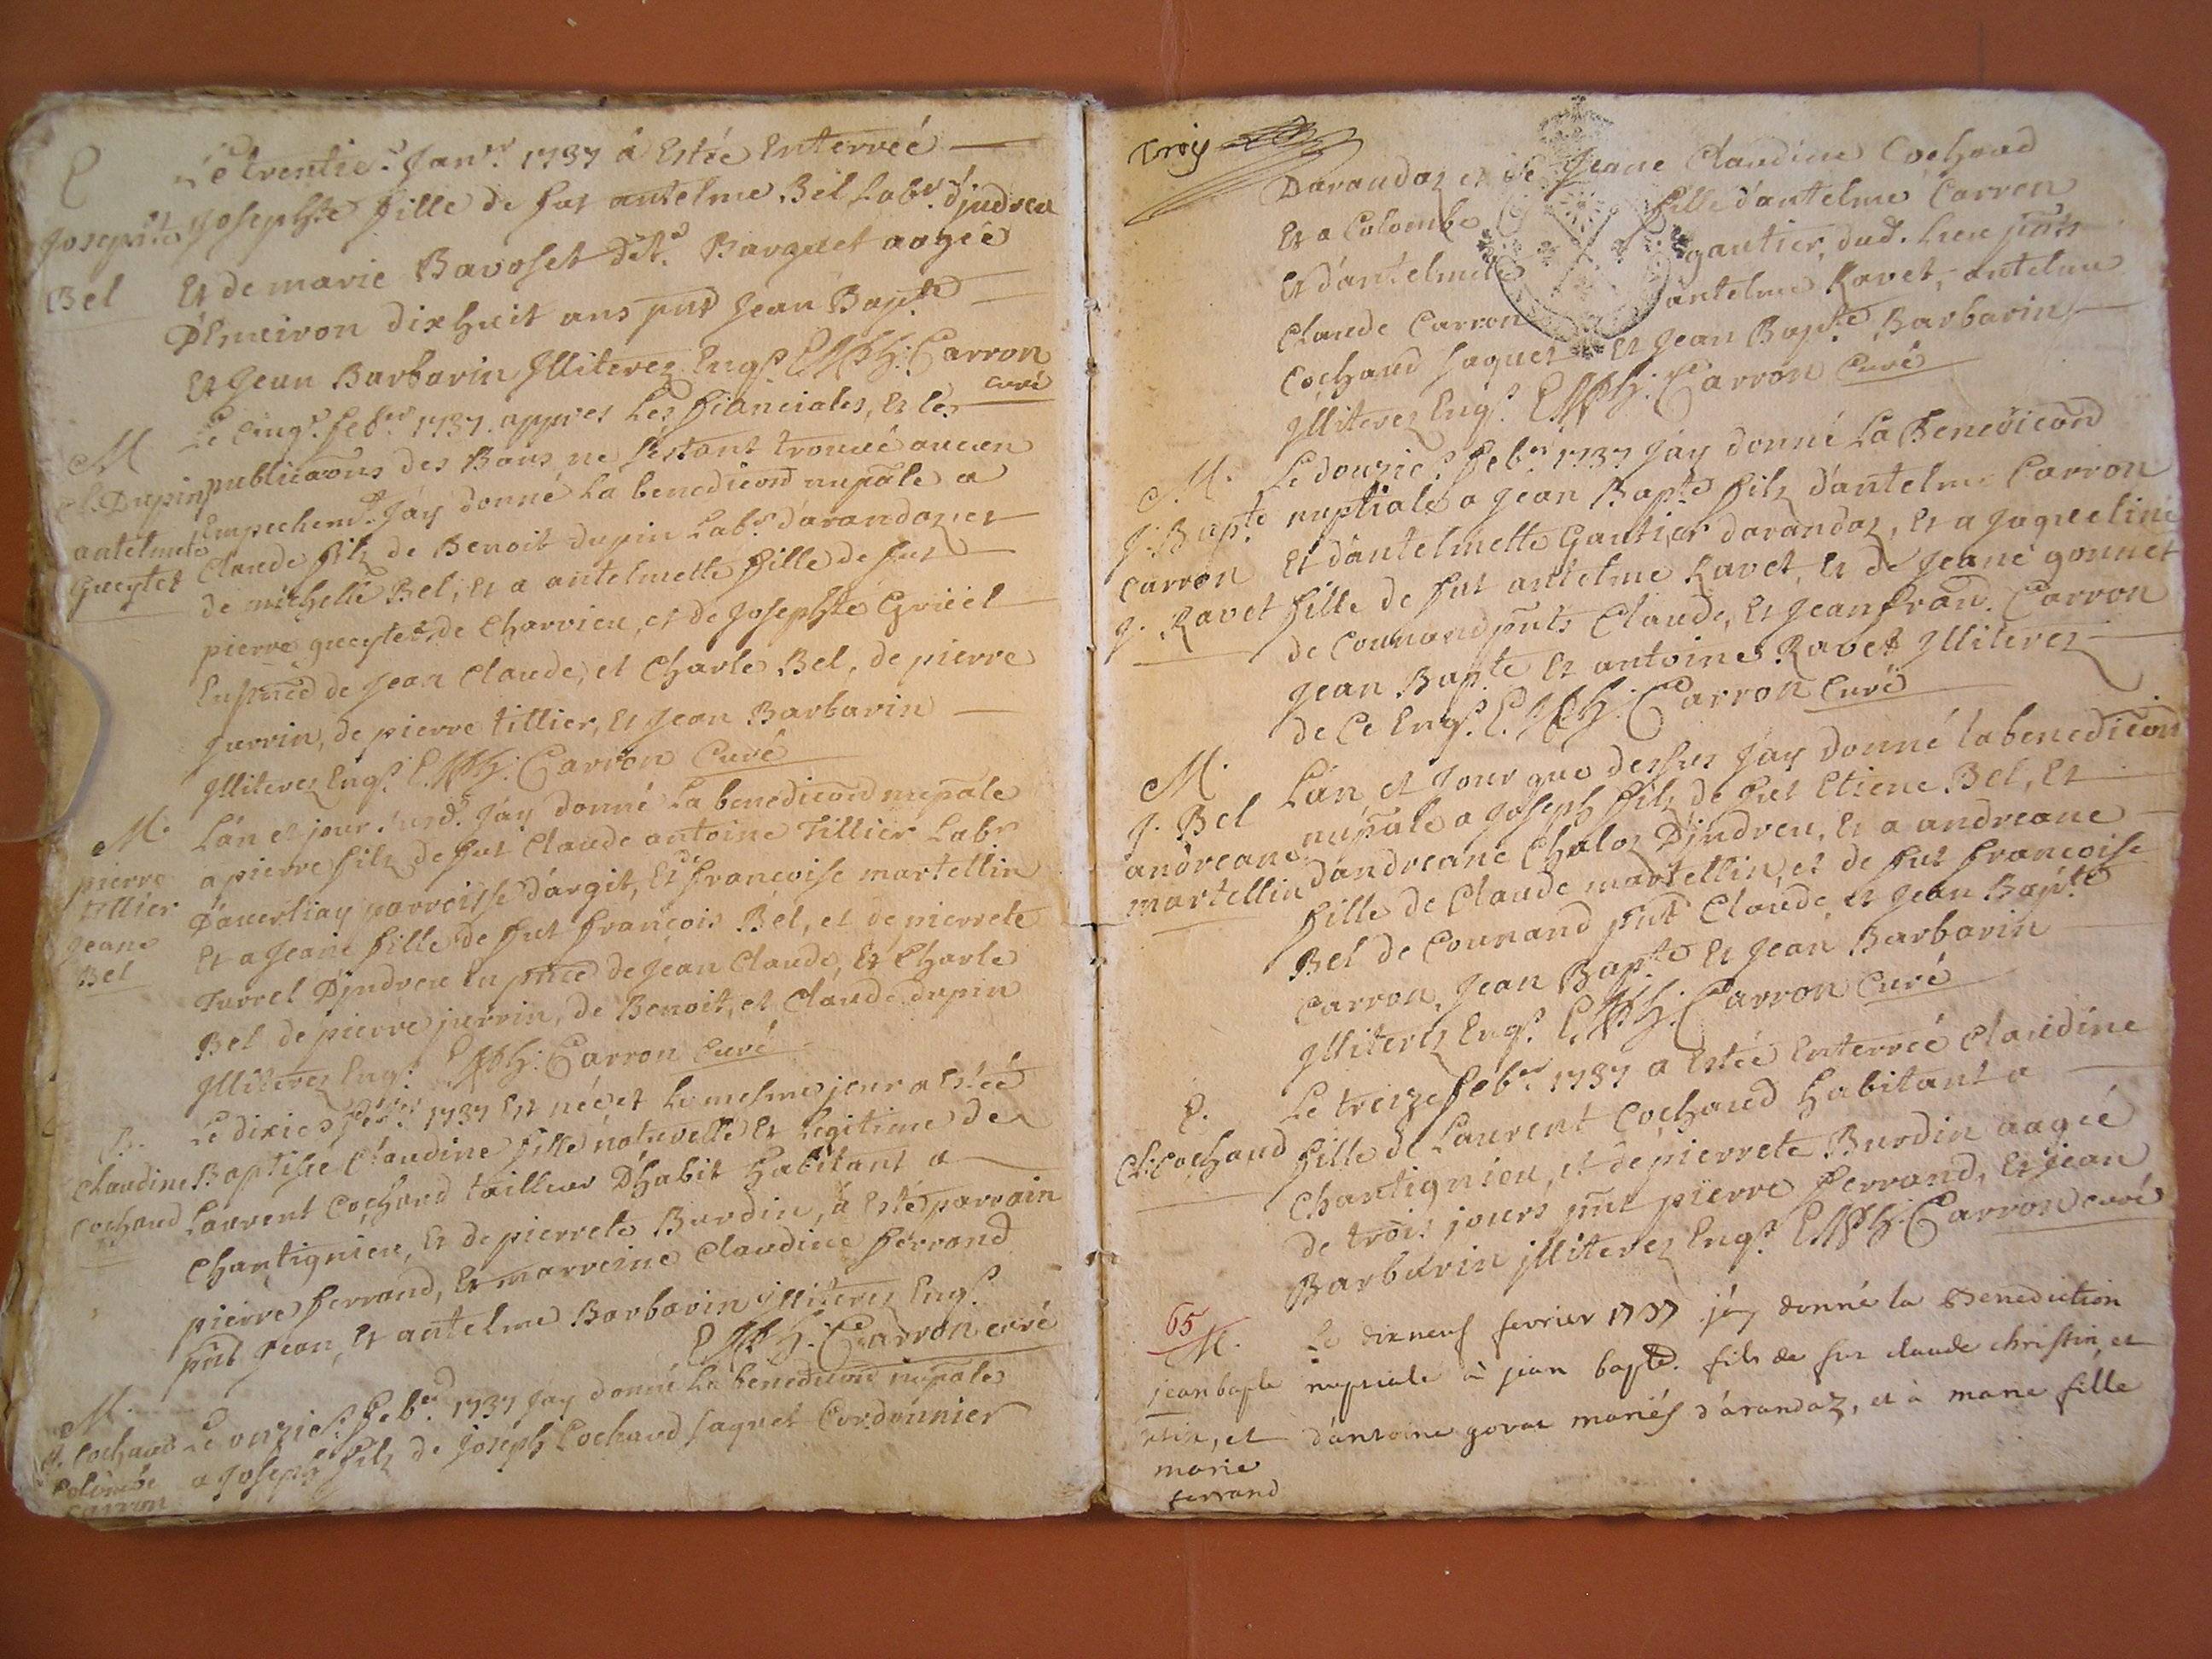 E
Josephte
Bel
Le trentie.e Janv.r 1737 â Estée Enterreé
Josephte fille de fut antelme Bel Lab.r Djndreu
Et de marie Bavoset dit.e Barquet aagée
D'Enuiron dixhuit ans pnts Jean Bap.te
Et Jean Barbarin Jlliterez Enq.s E Carron
curé
M
Cl. Dupin
antelmete
Gueytet
Le Cinq.e feb.er 1737. appres Les fianciales, Et les
publicaons des Bans ne s'estant trouué aucun
Empechem.t Jay donné La benedicond nupale a
Claude filz de Benoit dupin Lab.r d'arandaz, et
de michelle Bel, Et a antelmette fille de fut
pierre gueytet, de Charvieu, et de Josephte Gricel
En pnce de Jean Claude, et Charle Bel, de pierre
Juvrin, de pierre tillier, Et Jean Barbarin
Jlliterez Enq.s E Carron Curé
M.
pierre
tillier
Jeane
Bel
L'an et jour susd. Jay donné La benedicond nupale
a pierre filz de fut Claude antoine Tillier Lab.r
D'averliay parroisse d'argit, Et francoise martellin
Et a Jeane fille de fut françois Bel, et de pierrete
Turrel Djndreu En pnce de Jean Claude, Et Charle
Bel de pierre juvrin, de Benoit, et Claude dupin
Jlliterez Enq.s E Carron Curé
B.
Claudine
Cochaud
Le dixie.e feb.er 1737 Est née et le mesme jour a Estée
Baptisée Claudine fille naturelle Et Legitime de
Laurent Cochaud tailleur D'habit habitant a
Chantignieu, Et de pierrete Burdin, á Esté parrain
pierre ferrand, Et marreine Claudine ferrand
pnts Jean, Et antelme Barbarin jlliterez Enq.s
E Carron curé
M.
J. Cochaud
Colombe
Carron
Le onzie.e feb.er 1737 Jay donné La benedicond nupale
a Joseph filz de Joseph Cochaud Jaquet Cordonnier
Troy
Darandaz et de Jeane Claudine Cochaud
Et a Colombe fille d'antelme Carron
Et d'antelmete gautier, dud. Lieu pnts
Claude Carron antelme Ravet, antelme
Cochaud Jaquet Et Jean Bap.te Barbarin
Jlliterez Enq.s E Carron Curé
M.
J. Bap.te
Carron
J. Ravet
Le douzie.e feb.er 1737 Jay donné La Benedicond
nuptiale a Jean Bap.te filz d'antelme Carron
Et d'antelmette Gautier darandaz, Et a Jaqueline
fille de fut antelme Ravet, Et de Jeane gonnet
de Counand pnts Claude, Et Jean frand. Carron
Jean Bap.te Et antoine Ravet Jlliterez
de Ce Enq.s E Carron Curé
M.
J. Bel
andreane
martellin
L'an, et Jour que dessus Jay donné la benedicion
nupale a Joseph filz de fut Etiene Bel, Et
d'andreane Chaloz Djndreu, Et a andreane
fille de Claude martellin, et de fut francoise
Bel de Counand pnts Claude, et Jean Bap.te
Carron, Jean Bap.te Et Jean Barbarin
Jlliterez Enq.s E Carron Curé
E.
Cl. Cochaud
Le treize feb.er 1737 a Estée Enterreé Claudine
fille de Laurent Cochaud habitant a
Chantignieu, et de pierrete Burdin aageé
de trois jours pnts pierre ferrand, Et Jean
Barbarin jlliterez Enq.s E Carron curé
65
M.
jean bapte
et
marie
ferrand
Le dix neuf fevrier 1737 j'ay donné la Benediction
nuptiale à jean bapte. fils de fut claude christin, et
d'antoine govat mariés d'arandaz, et à marie fille